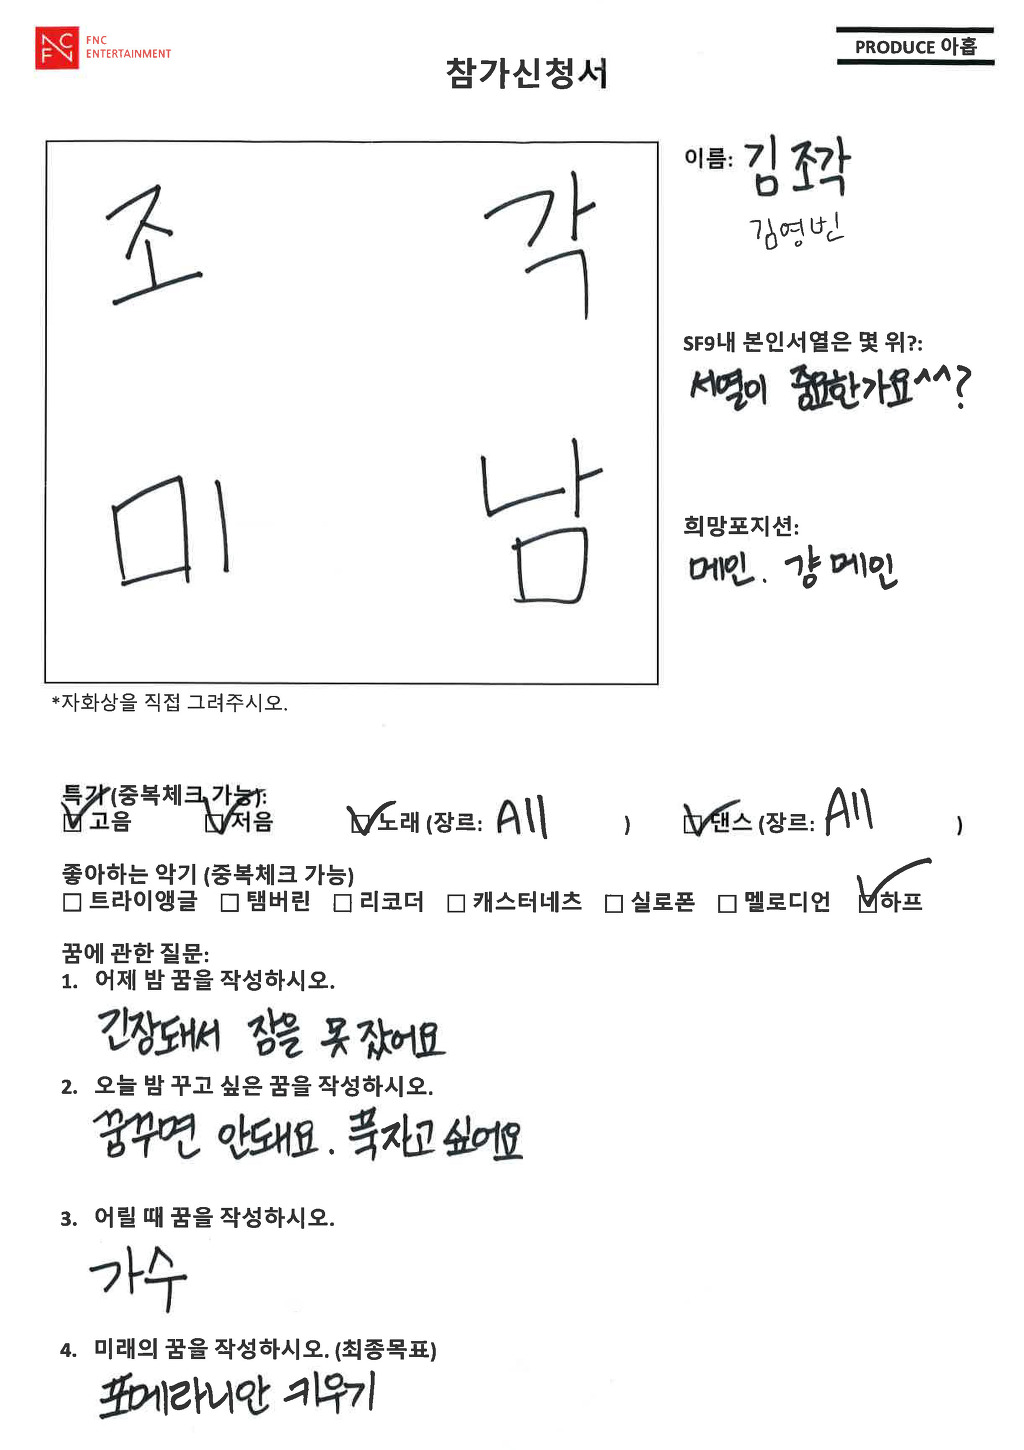 FNC
ENTERTAINMENT
PRODUCE 아홉
참가신청서
조 각
미 남
*자화상을 직접 그려주시오.
이름: 김조각
김영빈
SF9내 본인서열은 몇 위?:
서열이 중요한가요^^?
희망포지션:
메인. 걍 메인
특기 (중복체크 가능):
고음 저음 노래 (장르: All ) 댄스 (장르: All )
좋아하는 악기 (중복체크 가능)
트라이앵글 탬버린 리코더 캐스터네츠 실로폰 멜로디언 하프
꿈에 관한 질문:
1. 어제 밤 꿈을 작성하시오.
긴장돼서 잠을 못 잤어요
2. 오늘 밤 꾸고 싶은 꿈을 작성하시오.
꿈꾸면 안돼요. 푹자고 싶어요
3. 어릴 때 꿈을 작성하시오.
가수
4. 미래의 꿈을 작성하시오. (최종목표)
포메라니안 키우기